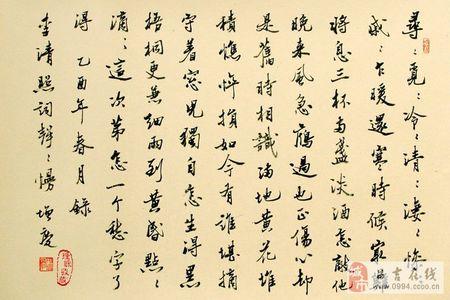 尋〻覓〻冷〻清〻凄〻惨
戚〻乍暖還寒時候最難
將息三杯兩盞淡酒怎敵他
晚来風急鴈過也正傷心却
是舊時相識滿地黄花堆
積憔悴損如今有誰堪摘
守着窓兒獨自怎生得黑
梧桐更兼細雨到黄昏點〻
滴〻這次第怎一个愁字了
得 乙酉年春月錄
李清照詞聲〻慢
昌吉在线
0994.com.cn